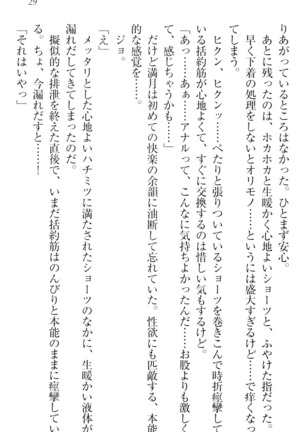 29
りあがっているところはなかった。ひとまず安心。
あとに残ったのは、ホカホカと生暖かく心地よいショーツと、ふやけた指だった。
早く下着の処理をしないとオリモノ……というには盛大すぎるけど……で痒くなっ
てしまう。
ヒクン、ヒクンッ……ぺたりと張りつくショーツを巻きこんで時折痙攣して
いる括約筋が心地よくて、すぐに交換するのは惜しい気もするけど。
「あっ……あぁ……アナルって、こんなに気持ちよかったんだ……お股よりも激しく
て、感じちゃうかも……」
だけど満月は初めての快楽の余韻に油断して忘れていた。性欲にも匹敵する、本能
的な感覚を……。
ジョ。
「え」
メッタリとした心地よいハチミツに満たされたショーツのなかに、生暖かい液体が
漏れだしてきてしまったのだ。
る。ちょ、今漏れだすと……！
擬似的な排泄を終えた直後で、いまだ括約筋はのんびりと本能のままに痙攣してい
「それはいやっ」